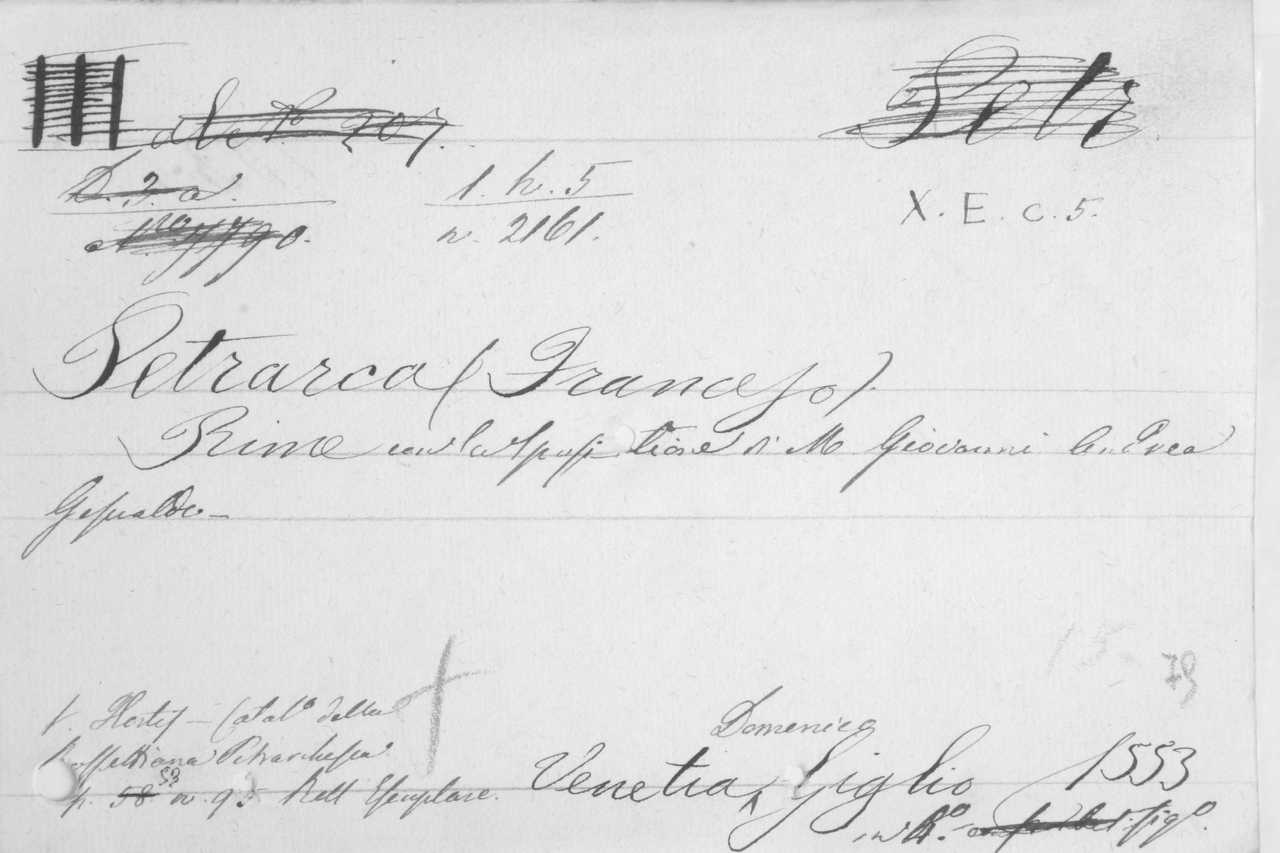 207. Petr.
D. 3. a. 1. h. 5 X. E. c. 5.
n. 2161.
Petrarca (Francesco).
Rime con la sposizione di M Giovanni Andrea
Gesualdo.
15 79
v. Hortis – Catal° della
Rossettiana Petrarchesca
p. 58 59 n. 95 Bell Esemplare.
Venetia, Domenico Giglio 1553
in 4° fig°.